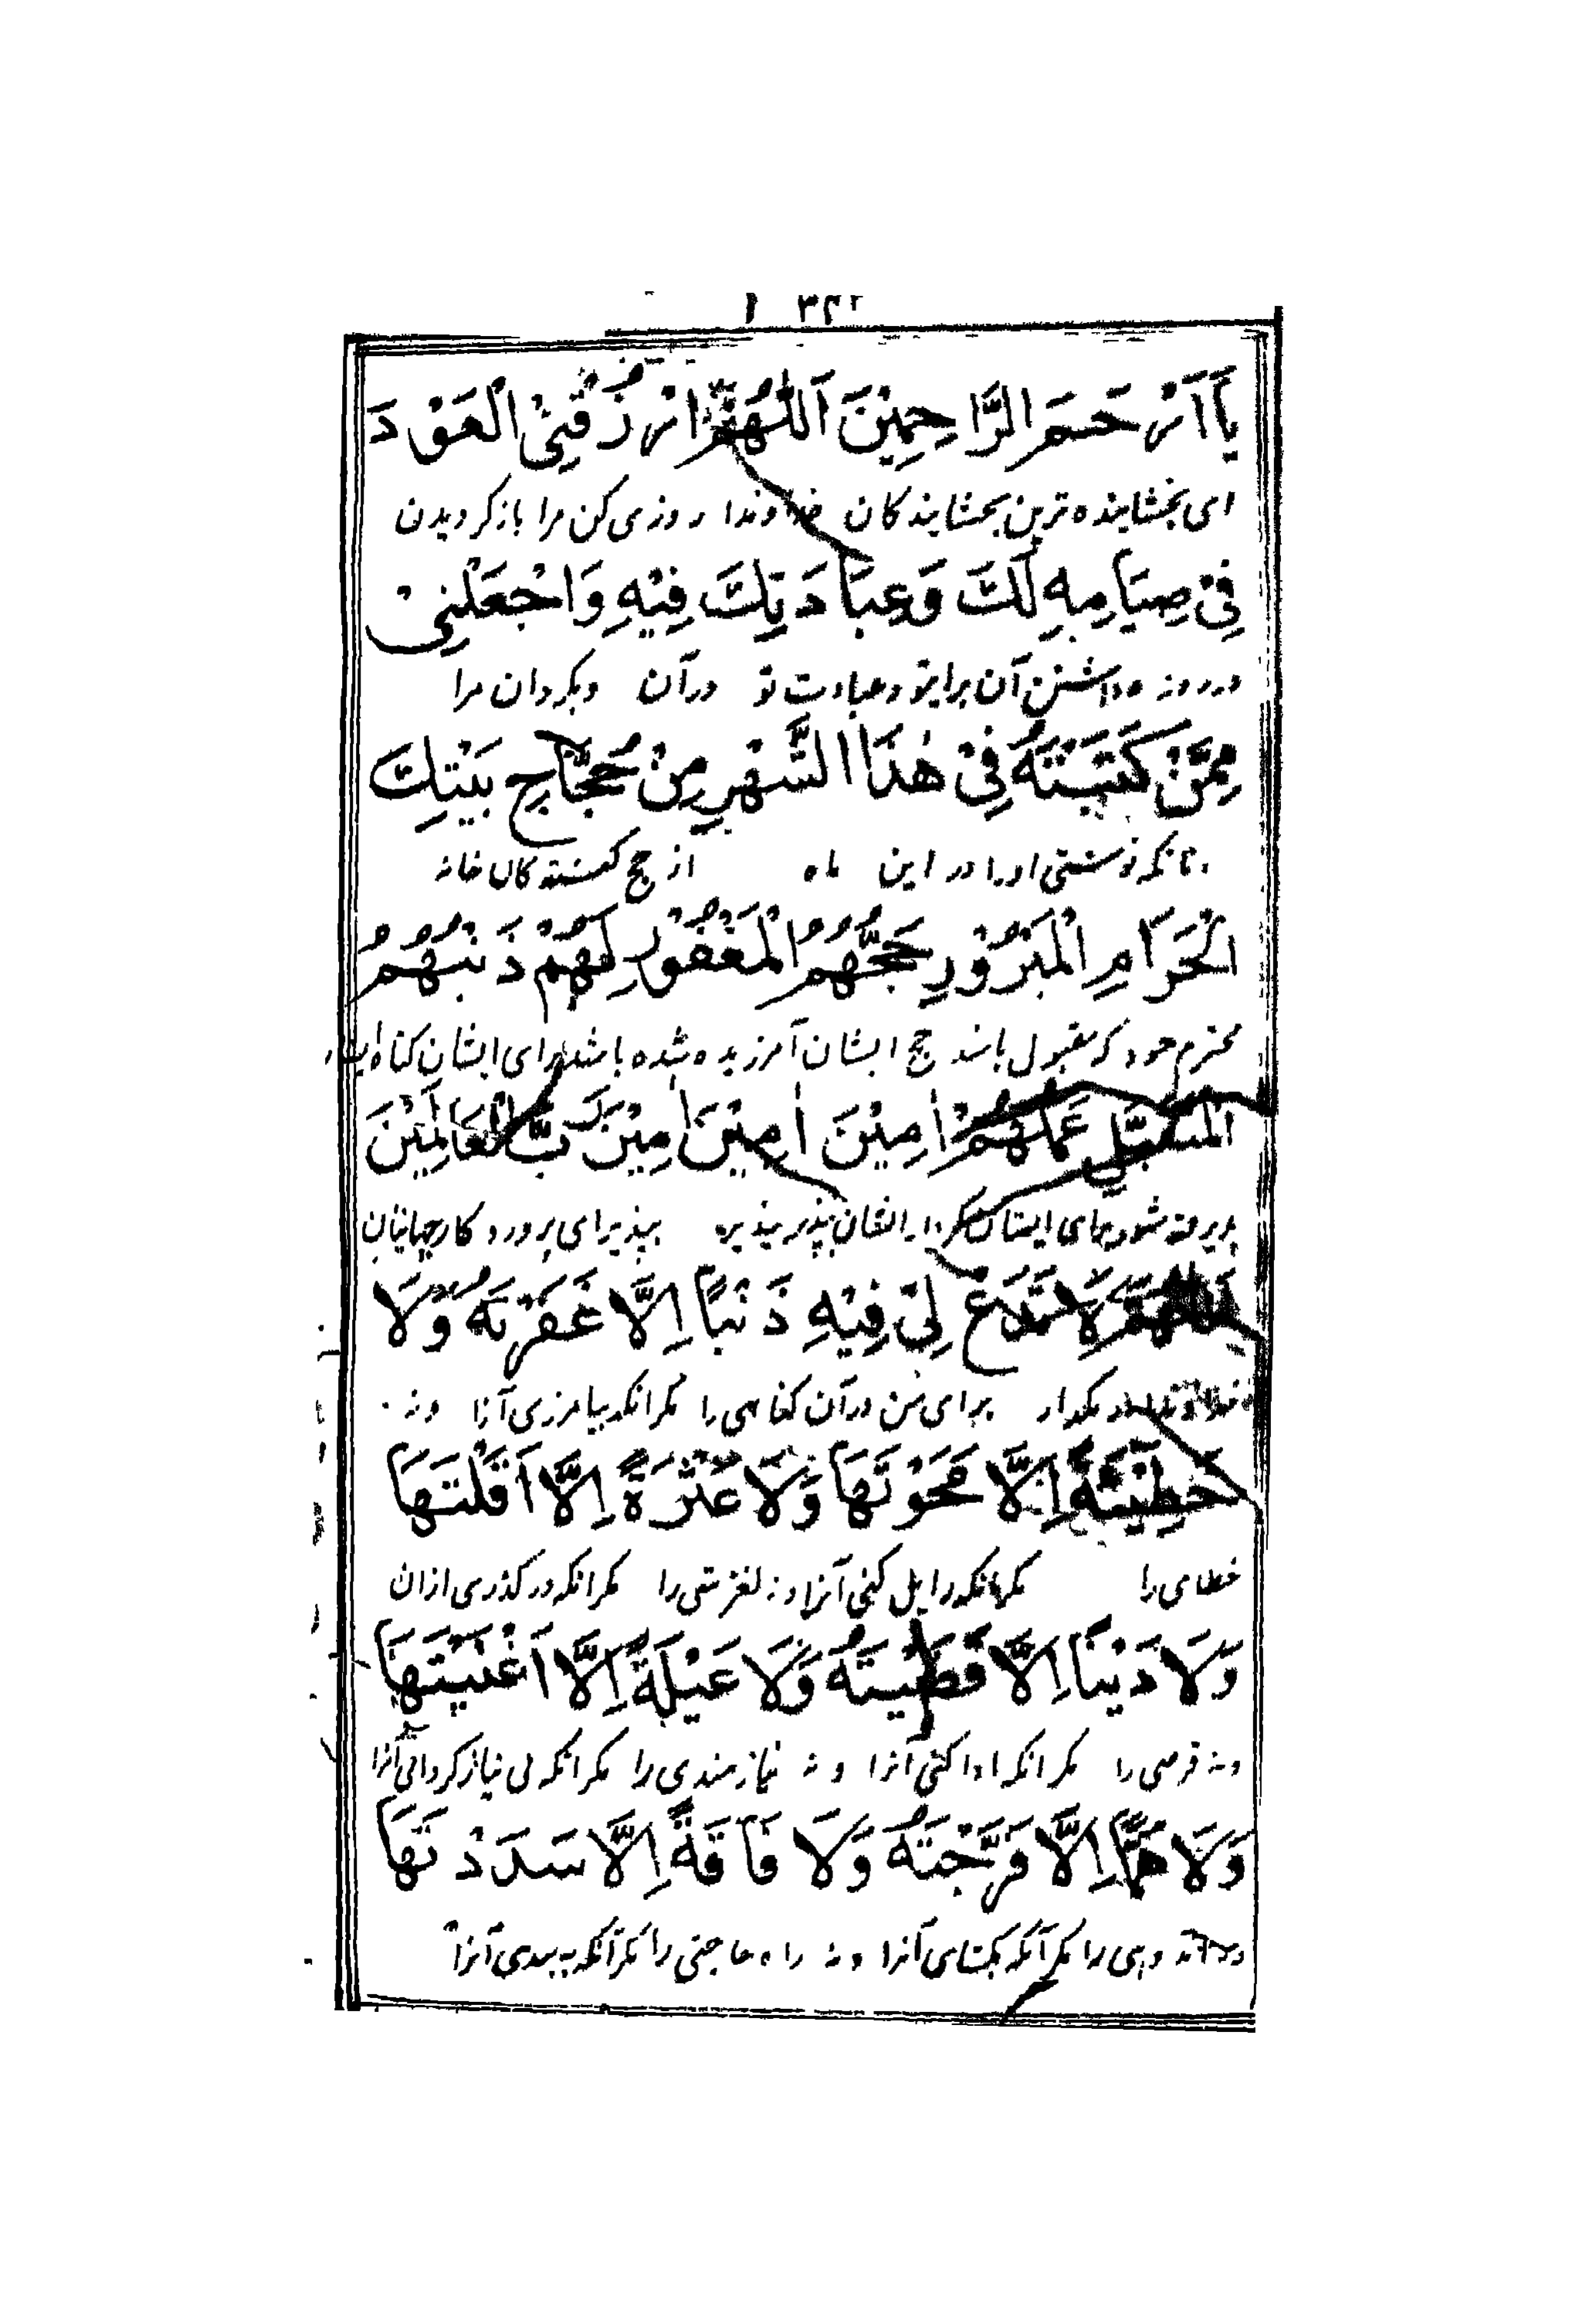 يَآ اَرْحَمَ الرَّاحِمِيْنَ اَللّٰهُمَّ ارْزُقْنِيْ الْعَوْدَ
ای بخشاینده ترین بخشایندگان خداوندا روزی کن مرا بازگردیدن
فِيْ صِيَامِهٖ لَكَ وَعِبَادَتِكَ فِيْهِ وَاجْعَلْنِيْ
در روزه داشتن آن برایتو وعبادت تو درآن وبگردان مرا
مِمَّنْ كَتَبْتَهُ فِيْ هٰذَا الشَّهْرِ مِنْ حُجَّاجِ بَيْتِكَ
نوشتی اورا در این ماه از حج کنندگان خانه
الْحَرَامِ الْمَبْرُوْرِ حَجُّهُمُ الْمَغْفُوْرِ لَهُمْ ذَنْبُهُمُ
محترم خود که مقبول باشد حج ایشان آمرزیده شده باشد برای ایشان گناه
الْمُتَقَبَّلِ عَمَلُهُمْ اٰمِيْنَ اٰمِيْنَ اٰمِيْنَ رَبَّ الْعَالَمِيْنَ
بپذیر بپذیر بپذیر ای پروردگار جهانیان
اَللّٰهُمَّ لَا تَدَعْ لِيْ فِيْهِ ذَنْبًا اِلَّا غَفَرْتَهُ وَلَا
خداوندا مگذار برای من درآن گناهی را مگر آنکه بیامرزی آنرا ونه
خَطِيْئَةً اِلَّا مَحَوْتَهَا وَلَا عَثْرَةً اِلَّا اَقَلْتَهَا
خطای را مگر آنکه زایل کنی آنرا ونه لغزشی را مگر آنکه درگذری ازان
وَلَا دَيْنًا اِلَّا قَضَيْتَهُ وَلَا عَيْلَةً اِلَّا اَغْنَيْتَهَا
ونه قرضی را مگر آنکه ادا کنی آنرا و نه نیازمندی را مگر آنکه بی نیاز گردانی آنرا
وَلَا هَمًّا اِلَّا فَرَّجْتَهُ وَلَا فَاقَةً اِلَّا سَدَدْتَهَا
را مگر آنکه بگشای آنرا ونه راه حاجتی را مگر آنکه به بندی آنرا